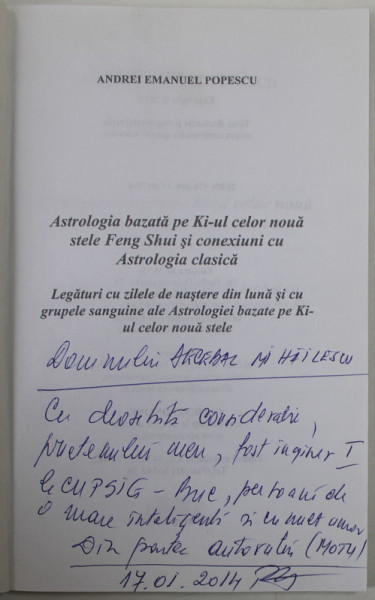 ANDREI EMANUEL POPESCU
Astrologia bazată pe Ki-ul celor nouă
stele Feng Shui şi conexiuni cu
Astrologia clasică
Legături cu zilele de naştere din lună şi cu
grupele sanguine ale Astrologiei bazate pe Ki-
ul celor nouă stele
Domnului DECEBAL MIHĂILESCU
Cu deosebită considerație,
prietenului meu, fost inginer I
la CUPSIG - Buc, persoană de
o mare inteligență și cu mult umor
Din partea autorului (MOTU)
17.01.2014